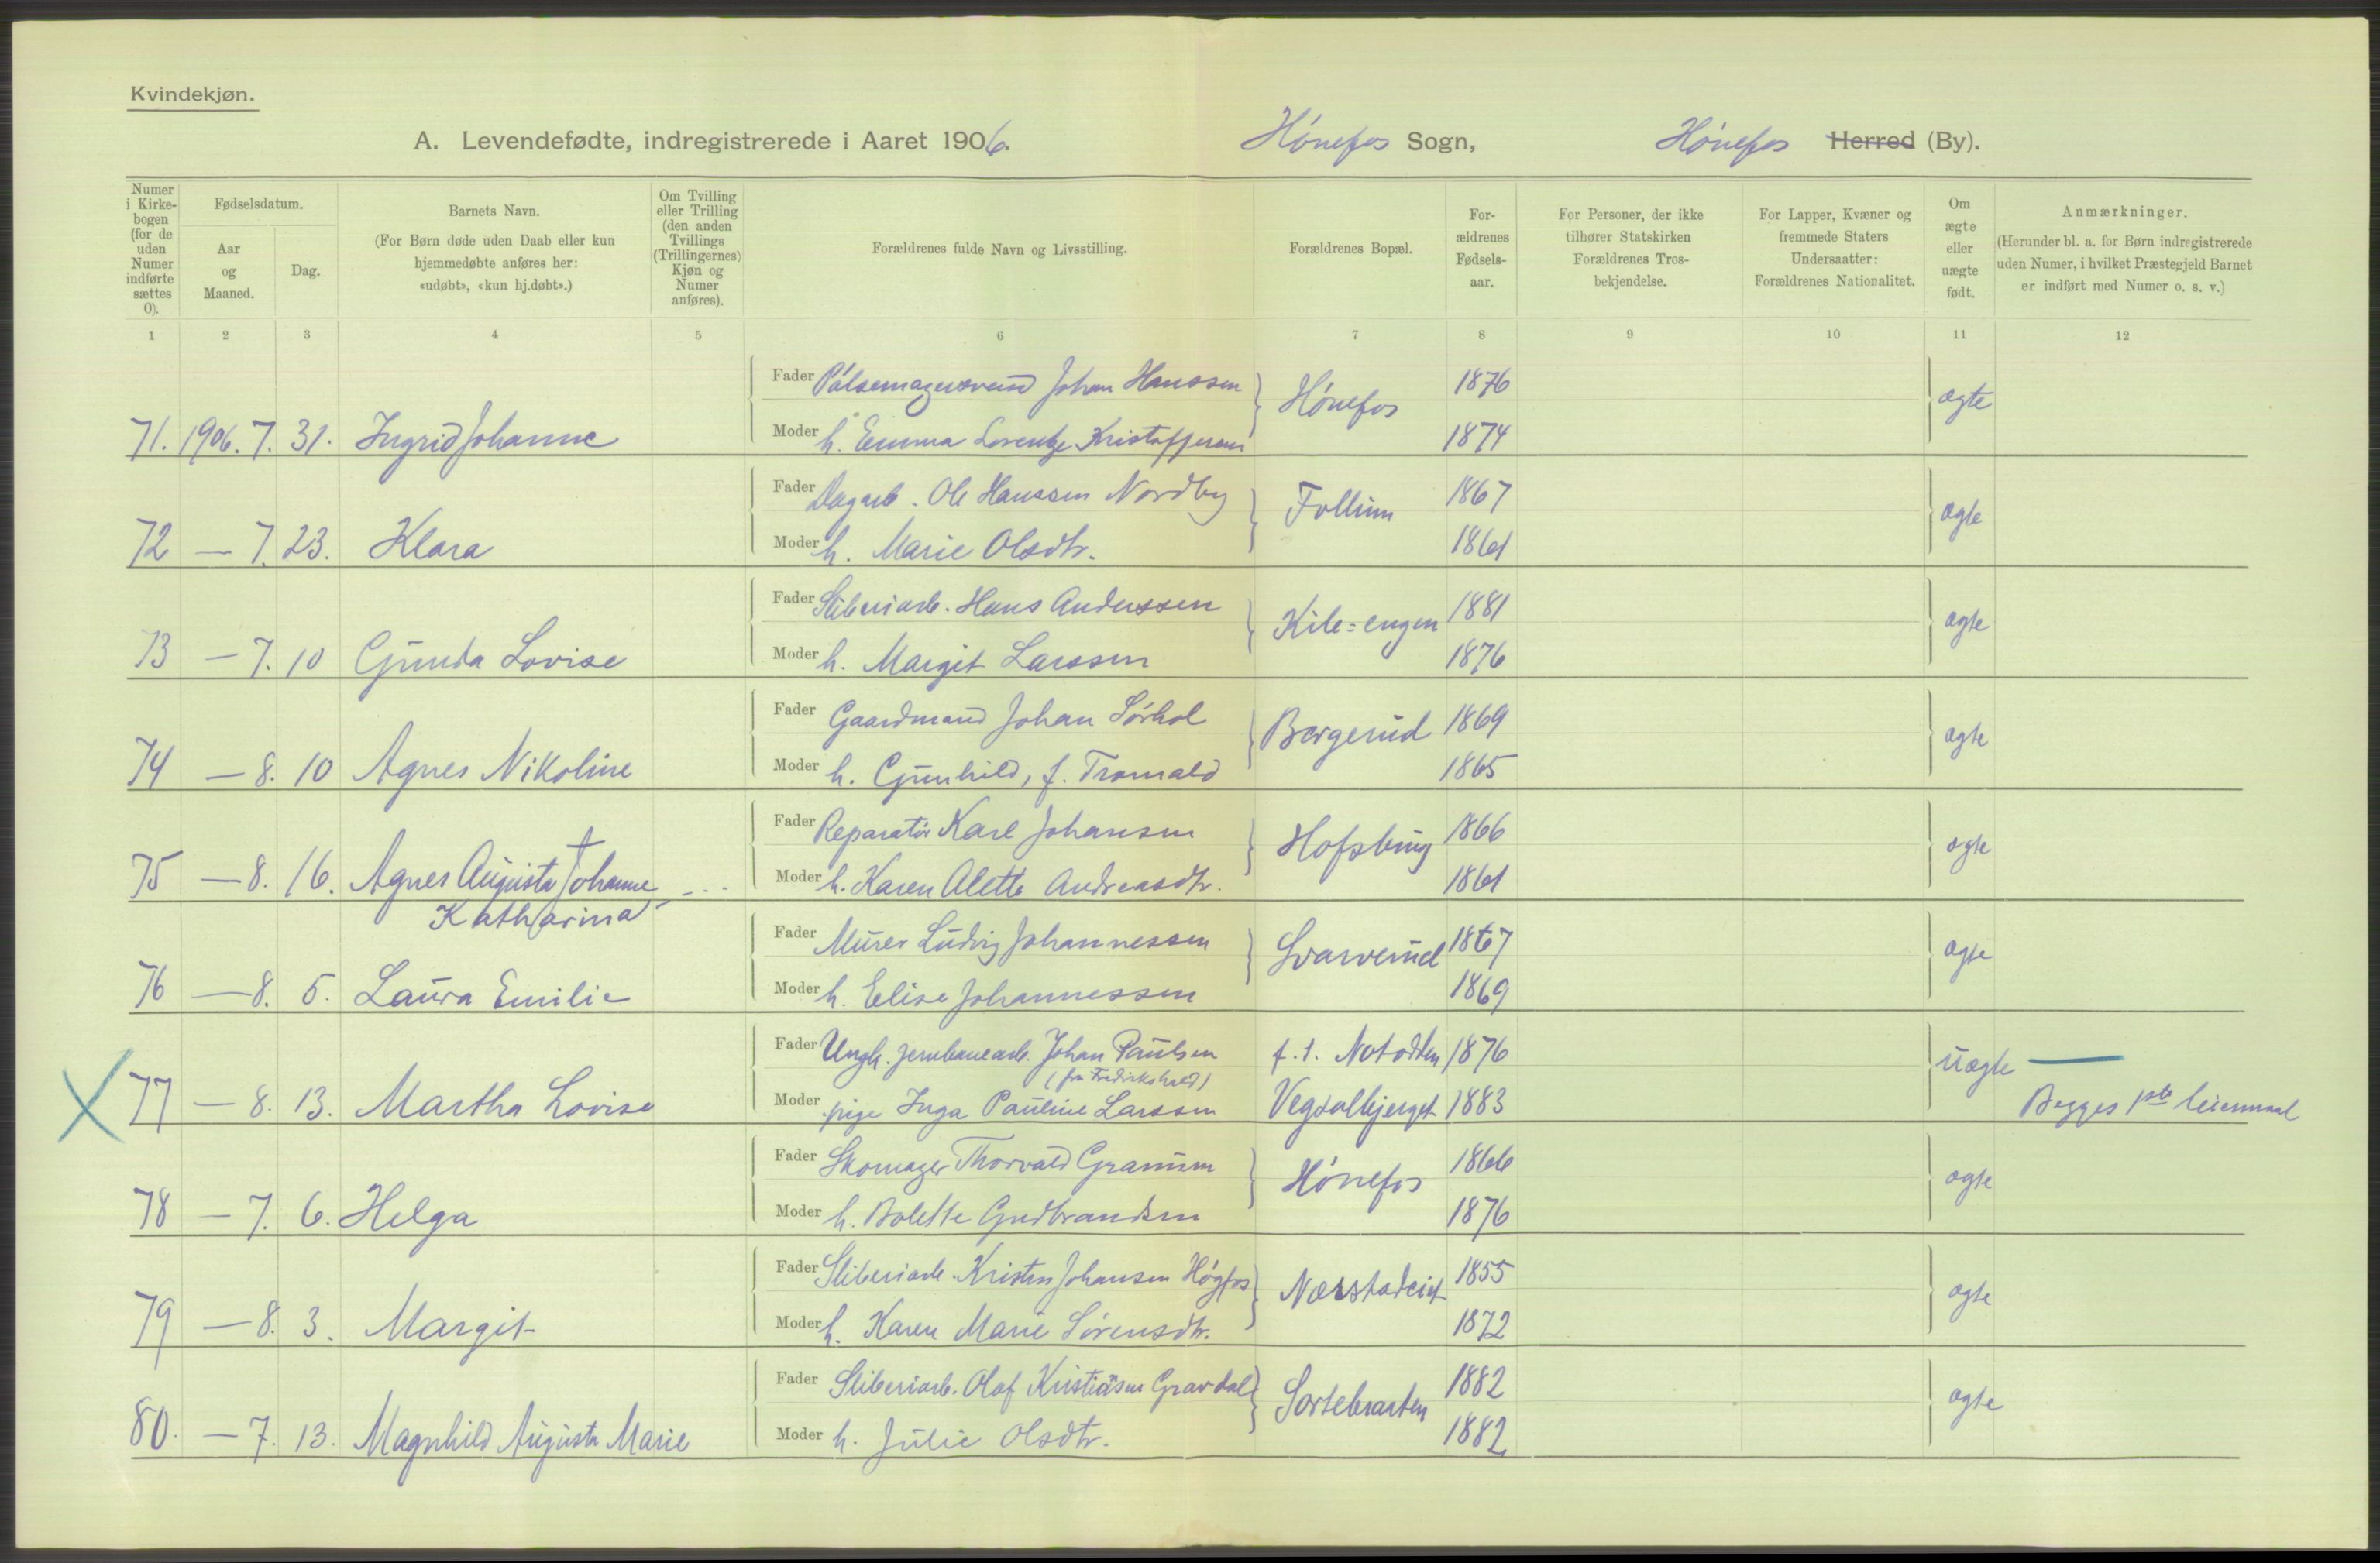 Kvindekjøn.
A. Levendefødte, indregistrerede i Aaret 1906. Hónefos Sogn, Hónefos Herred (By).
Numer i Kirke-bogen (for de uden Numer indførte sættes 0).
Fødselsdatum.
Aar og Maaned.
Dag.
Barnets Navn.
(For Børn døde uden Daab eller kun hjemmedøbte anføres her: «udøbt», «kun hj.døbt».)
Om Tvilling eller Trilling (den anden Tvillings (Trillingernes) Kjøn og Numer anføres).
Forældrenes fulde Navn og Livsstilling.
Forældrenes Bopæl.
For-ældrenes Fødsels-aar.
For Personer, der ikke tilhører Statskirken Forældrenes Tros-bekjendelse.
For Lapper, Kvæner og fremmede Staters Undersaatter: Forældrenes Nationalitet.
Om ægte eller uægte født.
Anmærkninger.
(Herunder bl. a. for Børn indregistrerede uden Numer, i hvilket Præstegjeld Barnet er indført med Numer o. s. v.)
1 2 3 4 5 6 7 8 9 10 11 12
Fader Pólsemagersvend Johan Hanssen Hónefos 1876 ægte
71. 1906. 7. 31. Ingrid Johanne Moder h. Emma Lorentze Kristoffersen 1874
Fader Dagarb. Ole Hanssen Nordby Follum 1867 ægte
72 — 7. 23. Klara Moder h. Marie Olsdtr. 1861
Fader Sliberiarb. Hans Anderssen Kile=engen 1881 ægte
73 — 7. 10 Gunda Lovise Moder h. Margit Larssen 1876
Fader Gaardmand Johan Sórhol Borgerud 1869 ægte
74 — 8. 10 Agnes Nikoline Moder h. Gunhild, f. Tramald 1865
Fader Reparatór Karl Johansen Hofsbung 1866 ægte
75 — 8. 16. Agnes Augusta Johanne Moder h. Karen Alette Andreasdtr. 1861
Katharina
Fader Murer Ludvig Johannessen Svarverud 1867 ægte
76 — 8. 5. Laura Emilie Moder h. Elise Johannessen 1869
Fader Ungk. jernbanearb. Johan Paulsen f. t. Notodden 1876 uægte —
(fra Fredrikshald)
77 — 8. 13. Martha Lovise Moder pige Inga Pauline Larssen 1883 Begges 1ste leiermaal
Fader Skomager Thorvald Granum Hónefos 1866 ægte
78 — 7. 6. Helga Moder h. Bolette Gudbrandsen 1876
Fader Sliberiarb. Kristen Johansen Høgfos Nærstadeiet 1855 ægte
79 — 8. 3. Margit Moder h. Karen Marie Sórensdtr. 1872
Fader Sliberiarb. Olaf Kristiansen Gravdal Sortebraaten 1882 ægte
80. — 7. 13. Magnhild Augusta Marie Moder h. Julie Olsdtr. 1882